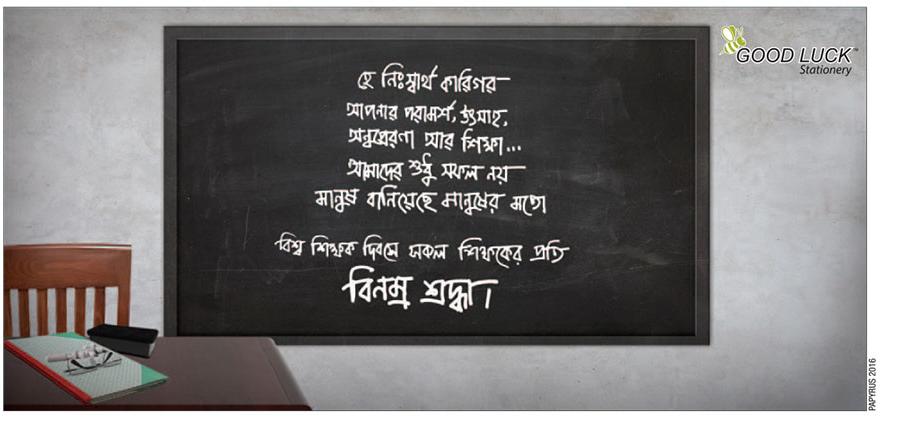 হে নিঃস্বার্থ কারিগর
আপনার পরামর্শ, উৎসাহ,
অনুপ্রেরণা আর শিক্ষা...
আমাদের শুধু সফল নয়
মানুষ বানিয়েছে মানুষের মতো
বিশ্ব শিক্ষক দিবসে সকল শিক্ষকের প্রতি
বিনম্র শ্রদ্ধা।
GOOD LUCK™
Stationery
PAPYRUS 2016